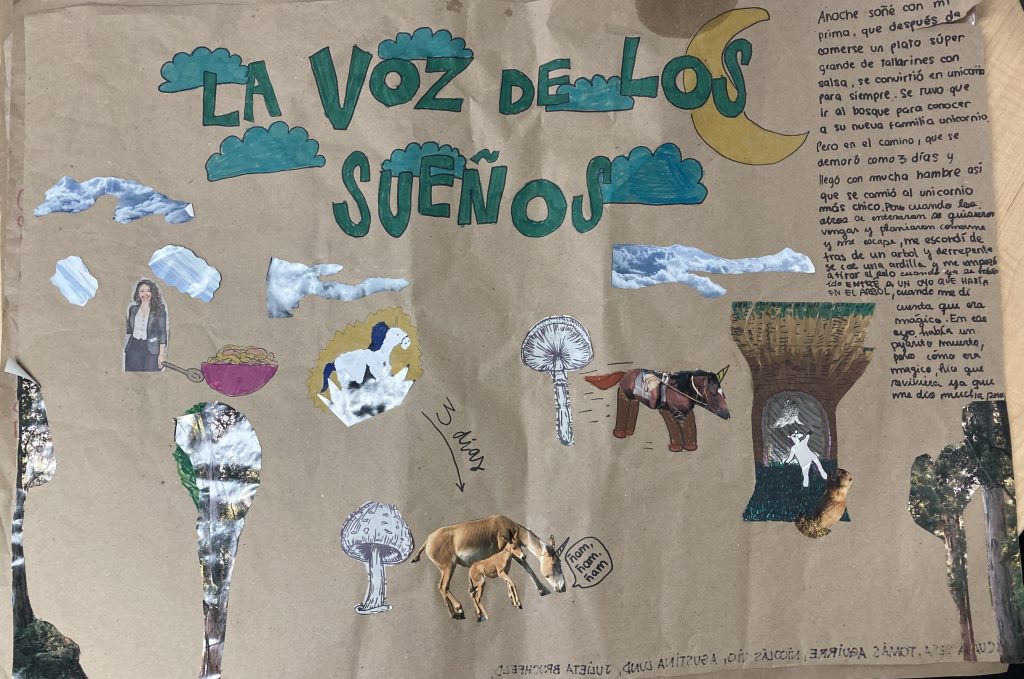 LA VOZ DE LOS
SUEÑOS
Anoche soñé con mi
prima, que después de
comerse un plato súper
grande de tallarines con
salsa, se convirtió en unicornio
para siempre. Se tuvo que
ir al bosque para conocer
a su nueva familia unicornio.
Pero en el camino, que se
demoró como 3 días y
llegó con mucha hambre así
que se comió al unicornio
más chico. Pero cuando los
otros se enteraron se quisieron
vengar y planiaron comerme
y me escape, me escordí de
tras de un arbol y derrepente
se cae una ardilla y me empezó
a tirar el pelo cuando ya se había
ido ENTRE A UN OYO QUE HABÍA
EN EL ARBOL, cuando me di
cuenta que era
mágico. En ese
oyo había un
pajarito muerto,
pero cómo era
magico, hio que
reviviera ya que
me dio mucha pena
3 días
ñam,
ñam,
ñam
TOMÁS AGUIRRE, NICOLÁS VIO, AGUSTINA LUND, JULIETA BRUCHFELD